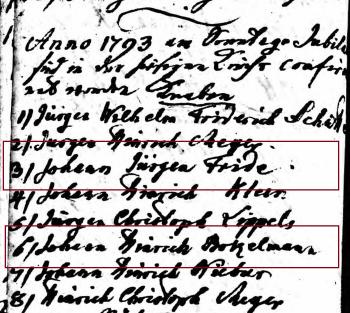 Anno 1793 am Sonntage Jubila
sind in der hiesigen Kirche confir
ret worden Knaben
1) Jürgen Wilhelm Friederich
2) Jurgen Hinrich Meyer
3) Johann Jürgen Fride
4) Johann Hinrich
5) Jürgen Christoph Lippels
6) Johann Hinrich Botzelmann
7) Johann Hinrich
8) Hinrich Christoph Meyer